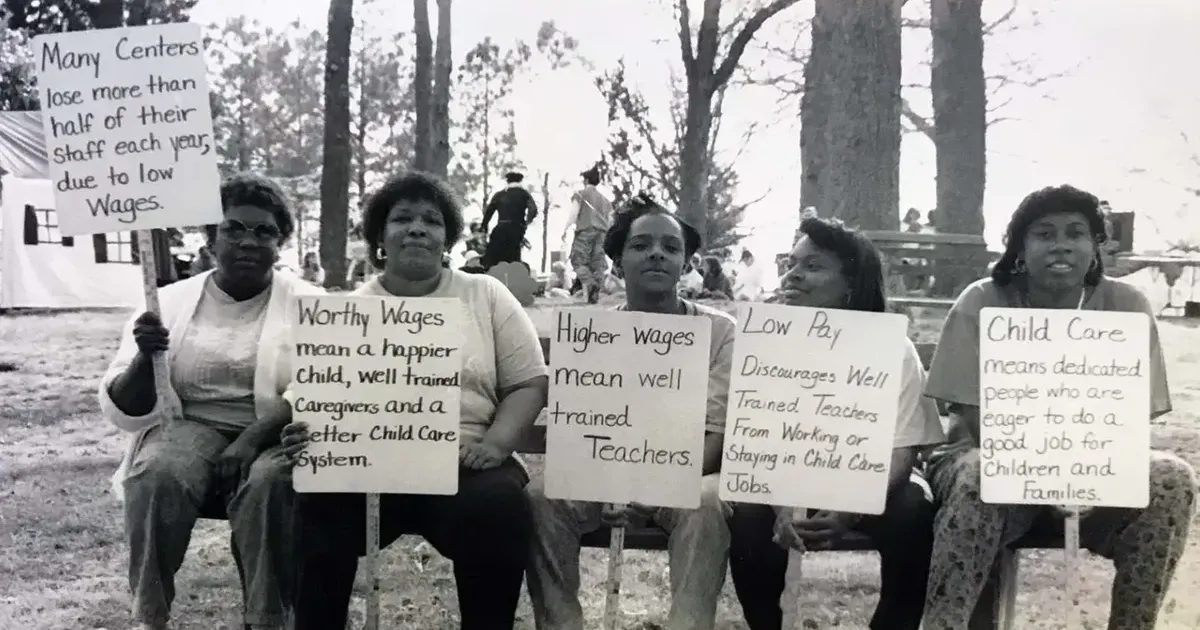 Many Centers
lose more than
half of their
Staff each year,
due to low
Wages.
Worthy Wages
mean a happier
Child, well trained
Caregivers and a
etter Child Care
System.
Higher Wages
mean well
trained
Teachers.
Low Pay
Discourages Well
Trained Teachers
From Working or
Staying in Child Care
Jobs.
Child Care
means dedicated
people who are
eager to do a
good job for
Children and
Families.